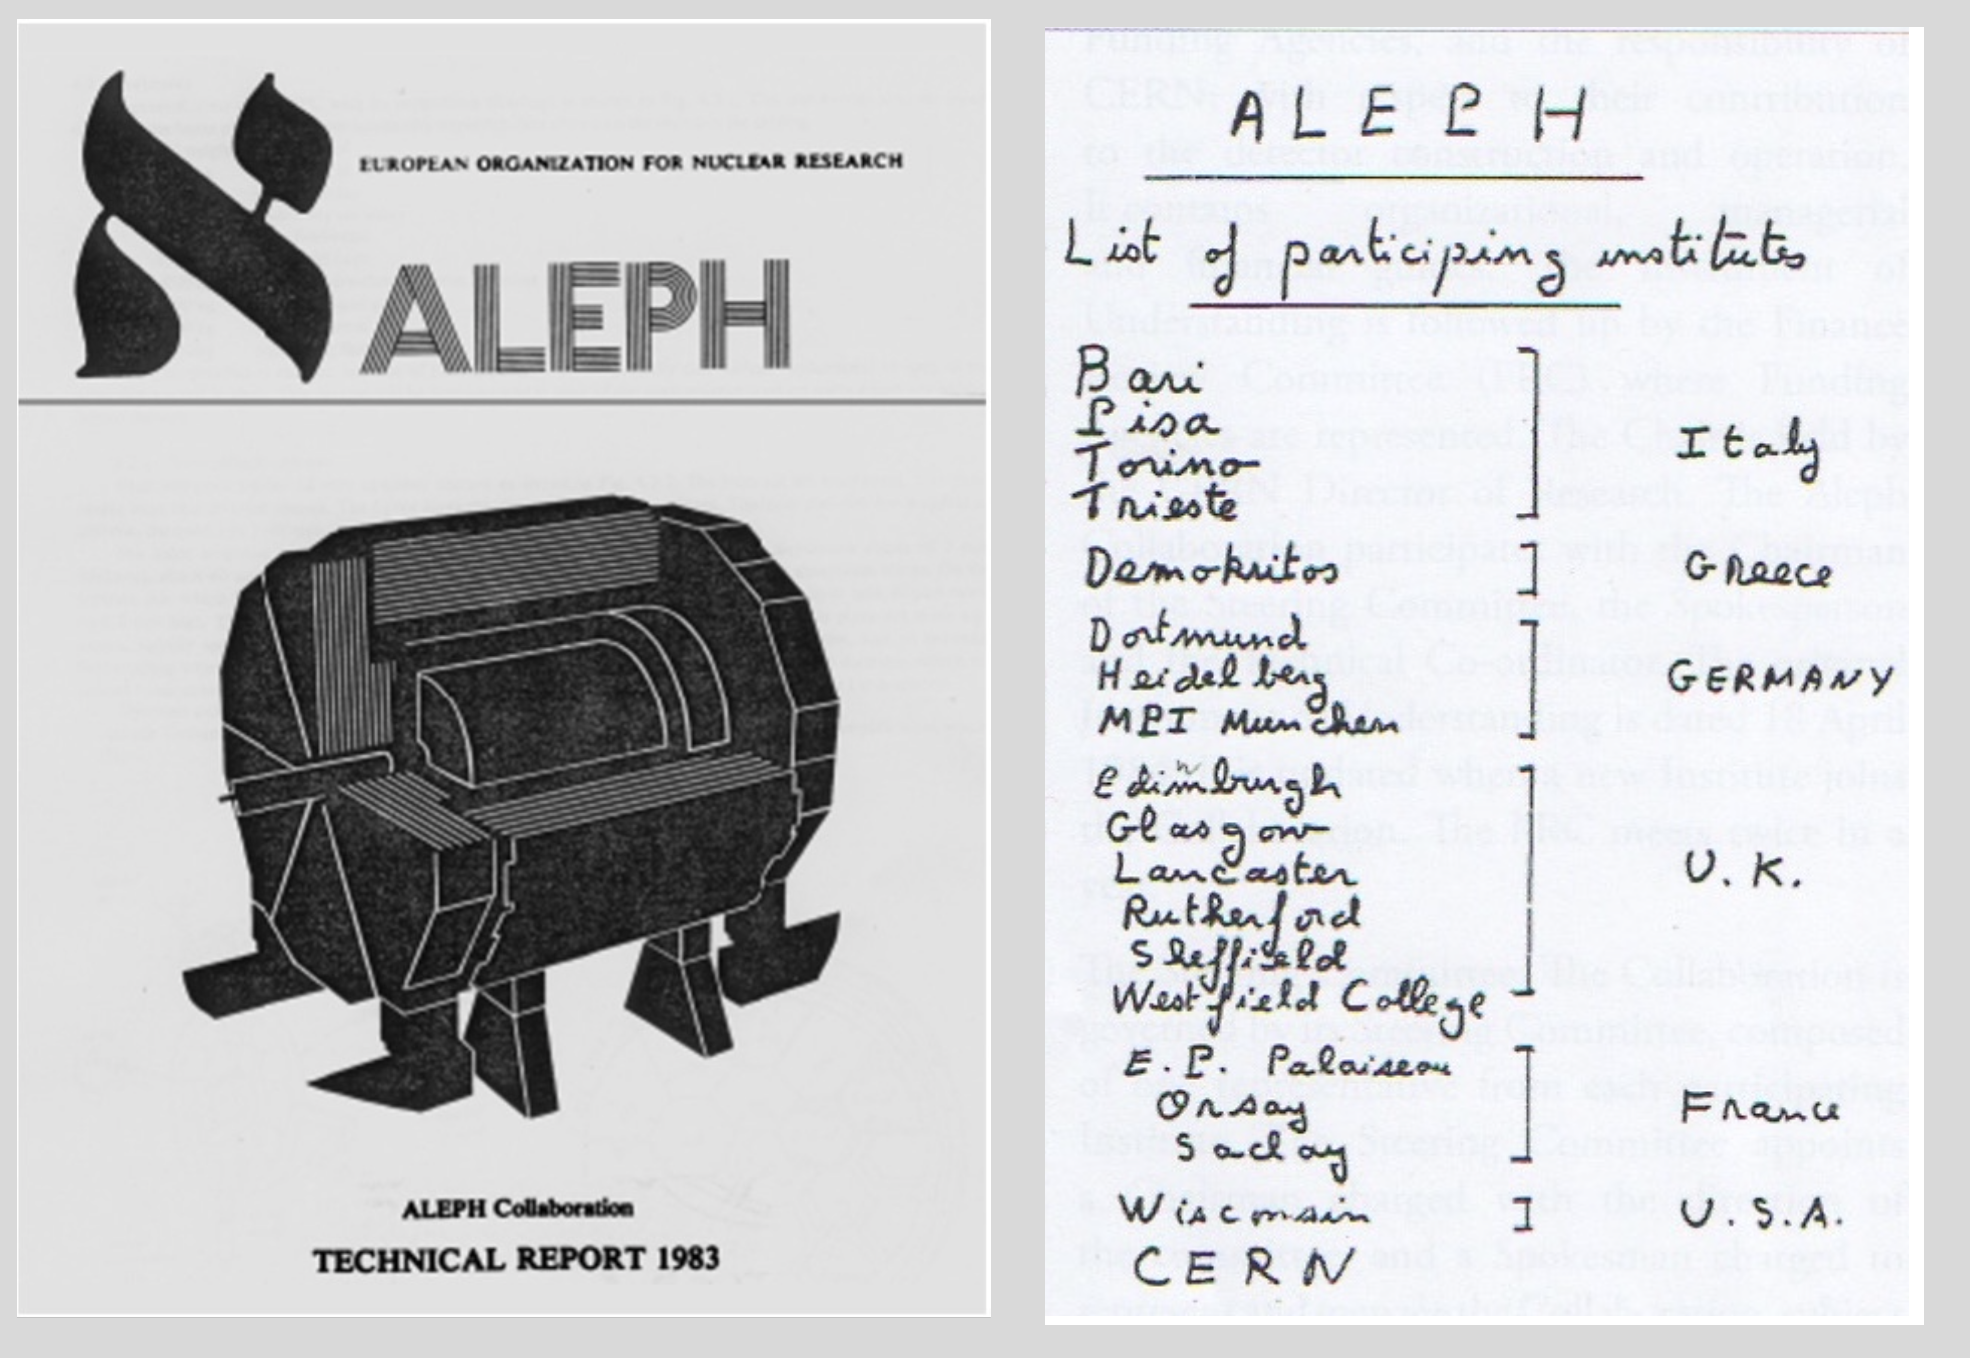 א
EUROPEAN ORGANIZATION FOR NUCLEAR RESEARCH
ALEPH
ALEPH Collaboration
TECHNICAL REPORT 1983
ALEPH
List of participing institutes
Bari
Pisa
Torino
Trieste
Italy
Demokritos
Greece
Dortmund
Heidelberg
MPI Munchen
GERMANY
Edimburgh
Glasgow
Lancaster
Rutherford
Sheffield
Westfield College
U.K.
E.P. Palaiseau
Orsay
Saclay
France
Wisconsin
U.S.A.
CERN